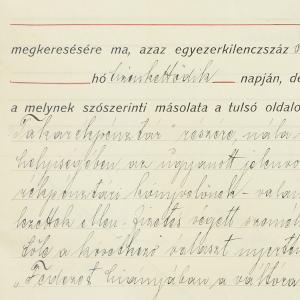 megkeresésére ma, azaz egyezerkilenczszáz
hó tizenkettödik napján, de
a melynek szószerinti másolata a tulsó oldalo
Takarékpénztár" részére, nála
helyiségében az ugyanott jelenvo
rékpénztári könyvelönek - valam
ellen - fizetés végett
töle a következö választ nyerte
"Fedezet hiányában a váltóra